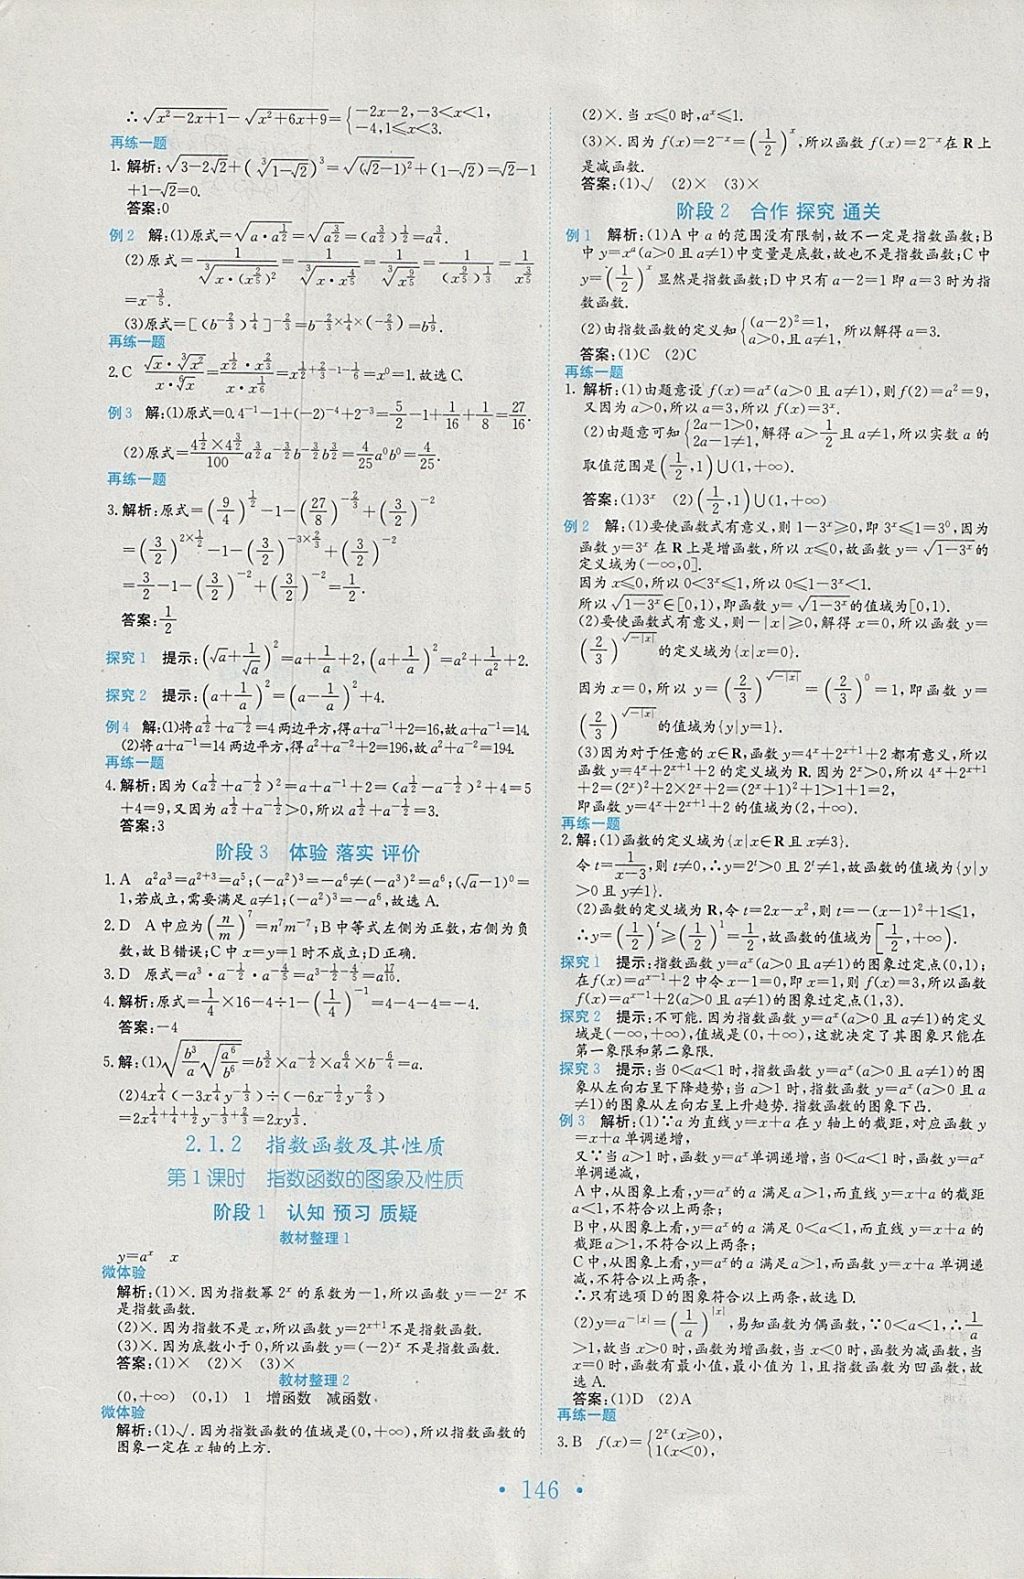 ∴√(x²−2x+1)−√(x²+6x+9)={−2x−2,−3<x<1, −4,1≤x<3.
再练一题
1. 解析:√(3−2√2)+(∛(1−√2))³=√((√2−1)²)+(1−√2)=√2−1
+1−√2=0.
答案:0
例2 解:(1)原式=√(a·a^(1/2))=√(a^(3/2))=(a^(3/2))^(1/2)=a^(3/4).
(2)原式=1/∛(x·(x^(2/5))²)=1/∛(x·x^(4/5))=1/∛(x^(9/5))=1/(x^(9/5))^(1/3)=1/x^(3/5)
=x^(−3/5).
(3)原式=[(b^(−2/3))^(1/4)]^(−2/3)=b^(−2/3×1/4×(−2/3))=b^(1/9).
再练一题
2.C (√x·∛(x²))/(x·⁶√x)=(x^(1/2)·x^(2/3))/(x·x^(1/6))=x^(1/2+2/3−1−1/6)=x⁰=1.故选C.
例3 解:(1)原式=0.4⁻¹−1+(−2)⁻⁴+2⁻³=5/2−1+1/16+1/8=27/16.
(2)原式=(4^(1/2)×4^(3/2))/100 a^(3/2)a^(−3/2)b^(−3/2)b^(3/2)=4/25a⁰b⁰=4/25.
再练一题
3. 解析:原式=(9/4)^(1/2)−1−(27/8)^(−2/3)+(3/2)^(−2)
=(3/2)^(2×1/2)−1−(3/2)^(−3×2/3)+(3/2)^(−2)
=3/2−1−(3/2)^(−2)+(3/2)^(−2)=1/2.
答案:1/2
探究1 提示:(√a+1/√a)²=a+1/a+2,(a+1/a)²=a²+1/a²+2.
探究2 提示:(a+1/a)²=(a−1/a)²+4.
例4 解:(1)将a^(1/2)+a^(−1/2)=4两边平方,得a+a⁻¹+2=16,故a+a⁻¹=14.
(2)将a+a⁻¹=14两边平方,得a²+a⁻²+2=196,故a²+a⁻²=194.
再练一题
4. 解析:因为(a^(1/2)+a^(−1/2))²=a+a⁻¹+2=(a^(1/2)−a^(−1/2))²+4=5
+4=9,又因为a^(1/2)+a^(−1/2)>0,所以a^(1/2)+a^(−1/2)=3.
答案:3
阶段3 体验 落实 评价
1.A a²a³=a²⁺³=a⁵;(−a²)³=−a⁶≠(−a³)²=a⁶;(√a−1)⁰=
1,若成立,需要满足a≠1;(−a²)³=−a⁶,故选A.
2.D A中应为(n/m)⁷=n⁷m⁻⁷;B中等式左侧为正数,右侧为负
数,故B错误;C中x=y=1时不成立;D正确.
3.D 原式=a³·a^(−1/2)·a^(−4/5)=a^(3−1/2−4/5)=a^(17/10).
4. 解析:原式=1/4×16−4÷1−(1/4)⁻¹=4−4−4=−4.
答案:−4
5. 解:(1)√(b³/a √(a⁶/b⁶))=b^(3/2)×a^(−1/2)×a^(6/4)×b^(−6/4)=a.
(2)4x^(1/4)(−3x^(1/4)y^(−1/3))÷(−6x^(−1/2)y^(−2/3))
=2x^(1/4+1/4+1/2)y^(−1/3+2/3)=2xy^(1/3).
2.1.2 指数函数及其性质
第1课时 指数函数的图象及性质
阶段1 认知 预习 质疑
教材整理1
y=aˣ x
微体验
解析:(1)×.因为指数幂2ˣ的系数为−1,所以函数y=−2ˣ不
是指数函数.
(2)×.因为指数不是x,所以函数y=2ˣ⁺¹不是指数函数.
(3)×.因为底数小于0,所以函数y=(−2)ˣ不是指数函数.
答案:(1)× (2)× (3)×
教材整理2
(0,+∞) (0,1) 1 增函数 减函数
微体验
解析:(1)√.因为指数函数的值域是(0,+∞),所以指数函数的
图象一定在x轴的上方.
(2)×.当x≤0时,aˣ≤1.
(3)×.因为f(x)=2⁻ˣ=(1/2)ˣ,所以函数f(x)=2⁻ˣ在R上
是减函数.
答案:(1)√ (2)× (3)×
阶段2 合作 探究 通关
例1 解析:(1)A中a的范围没有限制,故不一定是指数函数;B
中y=xᵃ(a>0且a≠1)中变量是底数,故也不是指数函数;C中
y=(1/2)ˣ显然是指数函数;D中只有a−2=1即a=3时为指
数函数.
(2)由指数函数的定义知{(a−2)²=1, a>0,且a≠1,所以解得a=3.
答案:(1)C (2)C
再练一题
1. 解析:(1)由题意设f(x)=aˣ(a>0且a≠1),则f(2)=a²=9,
又因为a>0,所以a=3,所以f(x)=3ˣ.
(2)由题意可知{2a−1>0, 2a−1≠1,解得a>1/2且a≠1,所以实数a的
取值范围是(1/2,1)∪(1,+∞).
答案:(1)3ˣ (2)(1/2,1)∪(1,+∞)
例2 解:(1)要使函数式有意义,则1−3ˣ≥0,即3ˣ≤1=3⁰,因为
函数y=3ˣ在R上是增函数,所以x≤0,故函数y=√(1−3ˣ)的
定义域为(−∞,0].
因为x≤0,所以0<3ˣ≤1,所以0≤1−3ˣ<1.
所以√(1−3ˣ)∈[0,1),即函数y=√(1−3ˣ)的值域为[0,1).
(2)要使函数式有意义,则−|x|≥0,解得x=0,所以函数y=
(2/3)^√(−|x|)的定义域为{x|x=0}.
因为x=0,所以y=(2/3)^√(−|x|)=(2/3)⁰=1,即函数y=
(2/3)^√(−|x|)的值域为{y|y=1}.
(3)因为对于任意的x∈R,函数y=4ˣ+2ˣ⁺¹+2都有意义,所
以函数y=4ˣ+2ˣ⁺¹+2的定义域为R.因为2ˣ>0,所以4ˣ+2ˣ⁺¹
+2=(2ˣ)²+2×2ˣ+2=(2ˣ+1)²+1>1+1=2,
即函数y=4ˣ+2ˣ⁺¹+2的值域为(2,+∞).
再练一题
2. 解:(1)函数的定义域为{x|x∈R且x≠3}.
令t=1/(x−3),则t≠0,∴y=2ᵗ>0且2ᵗ≠1,故函数的值域为{y|y
>0且y≠1}.
(2)函数的定义域为R,令t=2x−x²,则t=−(x−1)²+1≤1,
∴y=(1/2)ᵗ≥(1/2)¹=1/2,故函数的值域为[1/2,+∞).
探究1 提示:指数函数y=aˣ(a>0且a≠1)的图象过定点(0,1);
在f(x)=aˣ⁻¹+2中令x−1=0,即x=1,则f(x)=3,所以函数
f(x)=aˣ⁻¹+2(a>0且a≠1)的图象过定点(1,3).
探究2 提示:不可能.因为指数函数y=aˣ(a>0且a≠1)的定义
域是(−∞,+∞),值域是(0,+∞),这就决定了其图象只能在
第一象限和第二象限.
探究3 提示:当0<a<1时,指数函数y=aˣ(a>0且a≠1)的图
象从左向右呈下降趋势;当a>1时,指数函数y=aˣ(a>0且a
≠1)的图象从左向右呈上升趋势.指数函数的图象下凸.
例3 解析:(1)∵a为直线y=x+a在y轴上的截距,对应函数y
=x+a单调递增,
又∵当a>1时,函数y=aˣ单调递增,当0<a<1时,函数y=aˣ
单调递减,
A中,从图象上看,y=aˣ的a满足a>1,而直线y=x+a的截距
a<1,不符合以上两条;
B中,从图象上看,y=aˣ的a满足0<a<1,而直线y=x+a的
截距a>1,不符合以上两条;
C中,从图象上看,y=aˣ的a满足a>1,而函数y=x+a单调递
减,不符合以上两条,
∴只有选项D的图象符合以上两条,故选D.
(2)y=a^(−|x|)=(1/a)^|x|,易知函数为偶函数,∵0<a<1,∴1/a
>1,故当x>0时,函数为增函数,当x<0时,函数为减函数,当
x=0时,函数有最小值,最小值为1,且指数函数为凹函数,故
选A.
答案:(1)D (2)A
再练一题
3.B f(x)={2ˣ(x≥0), 1(x<0),
• 146 •